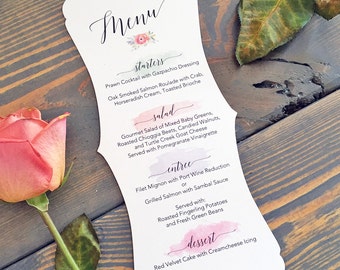 Menu
starters
Prawn Cocktail with Gazpacho Dressing
Oak Smoked Salmon Roulade with Crab,
Horseredish Cream, Toasted Brioche
salad
Gourmet Salad of Mixed Baby Greens,
Roasted Chioggia Beets, Candied Walnuts,
and Turtle Creek Goat Cheese
Served with Pomegranate Vinaigrette
entree
Filet Mignon with Port Wine Reduction
or
Grilled Salmon with Sambal Sauce
Served with:
Roasted Fingerling Potatoes
and Fresh Green Beans
dessert
Red Velvet Cake with Creamcheese Icing